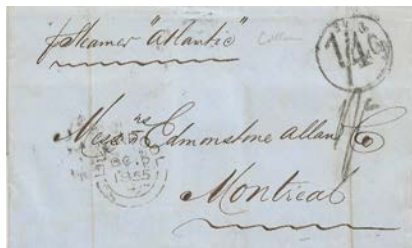 p Steamer "Atlantic"
1/4 Cy
Messrs Edmonstone Allan & Co
LIVERPOOL
1855
Montreal